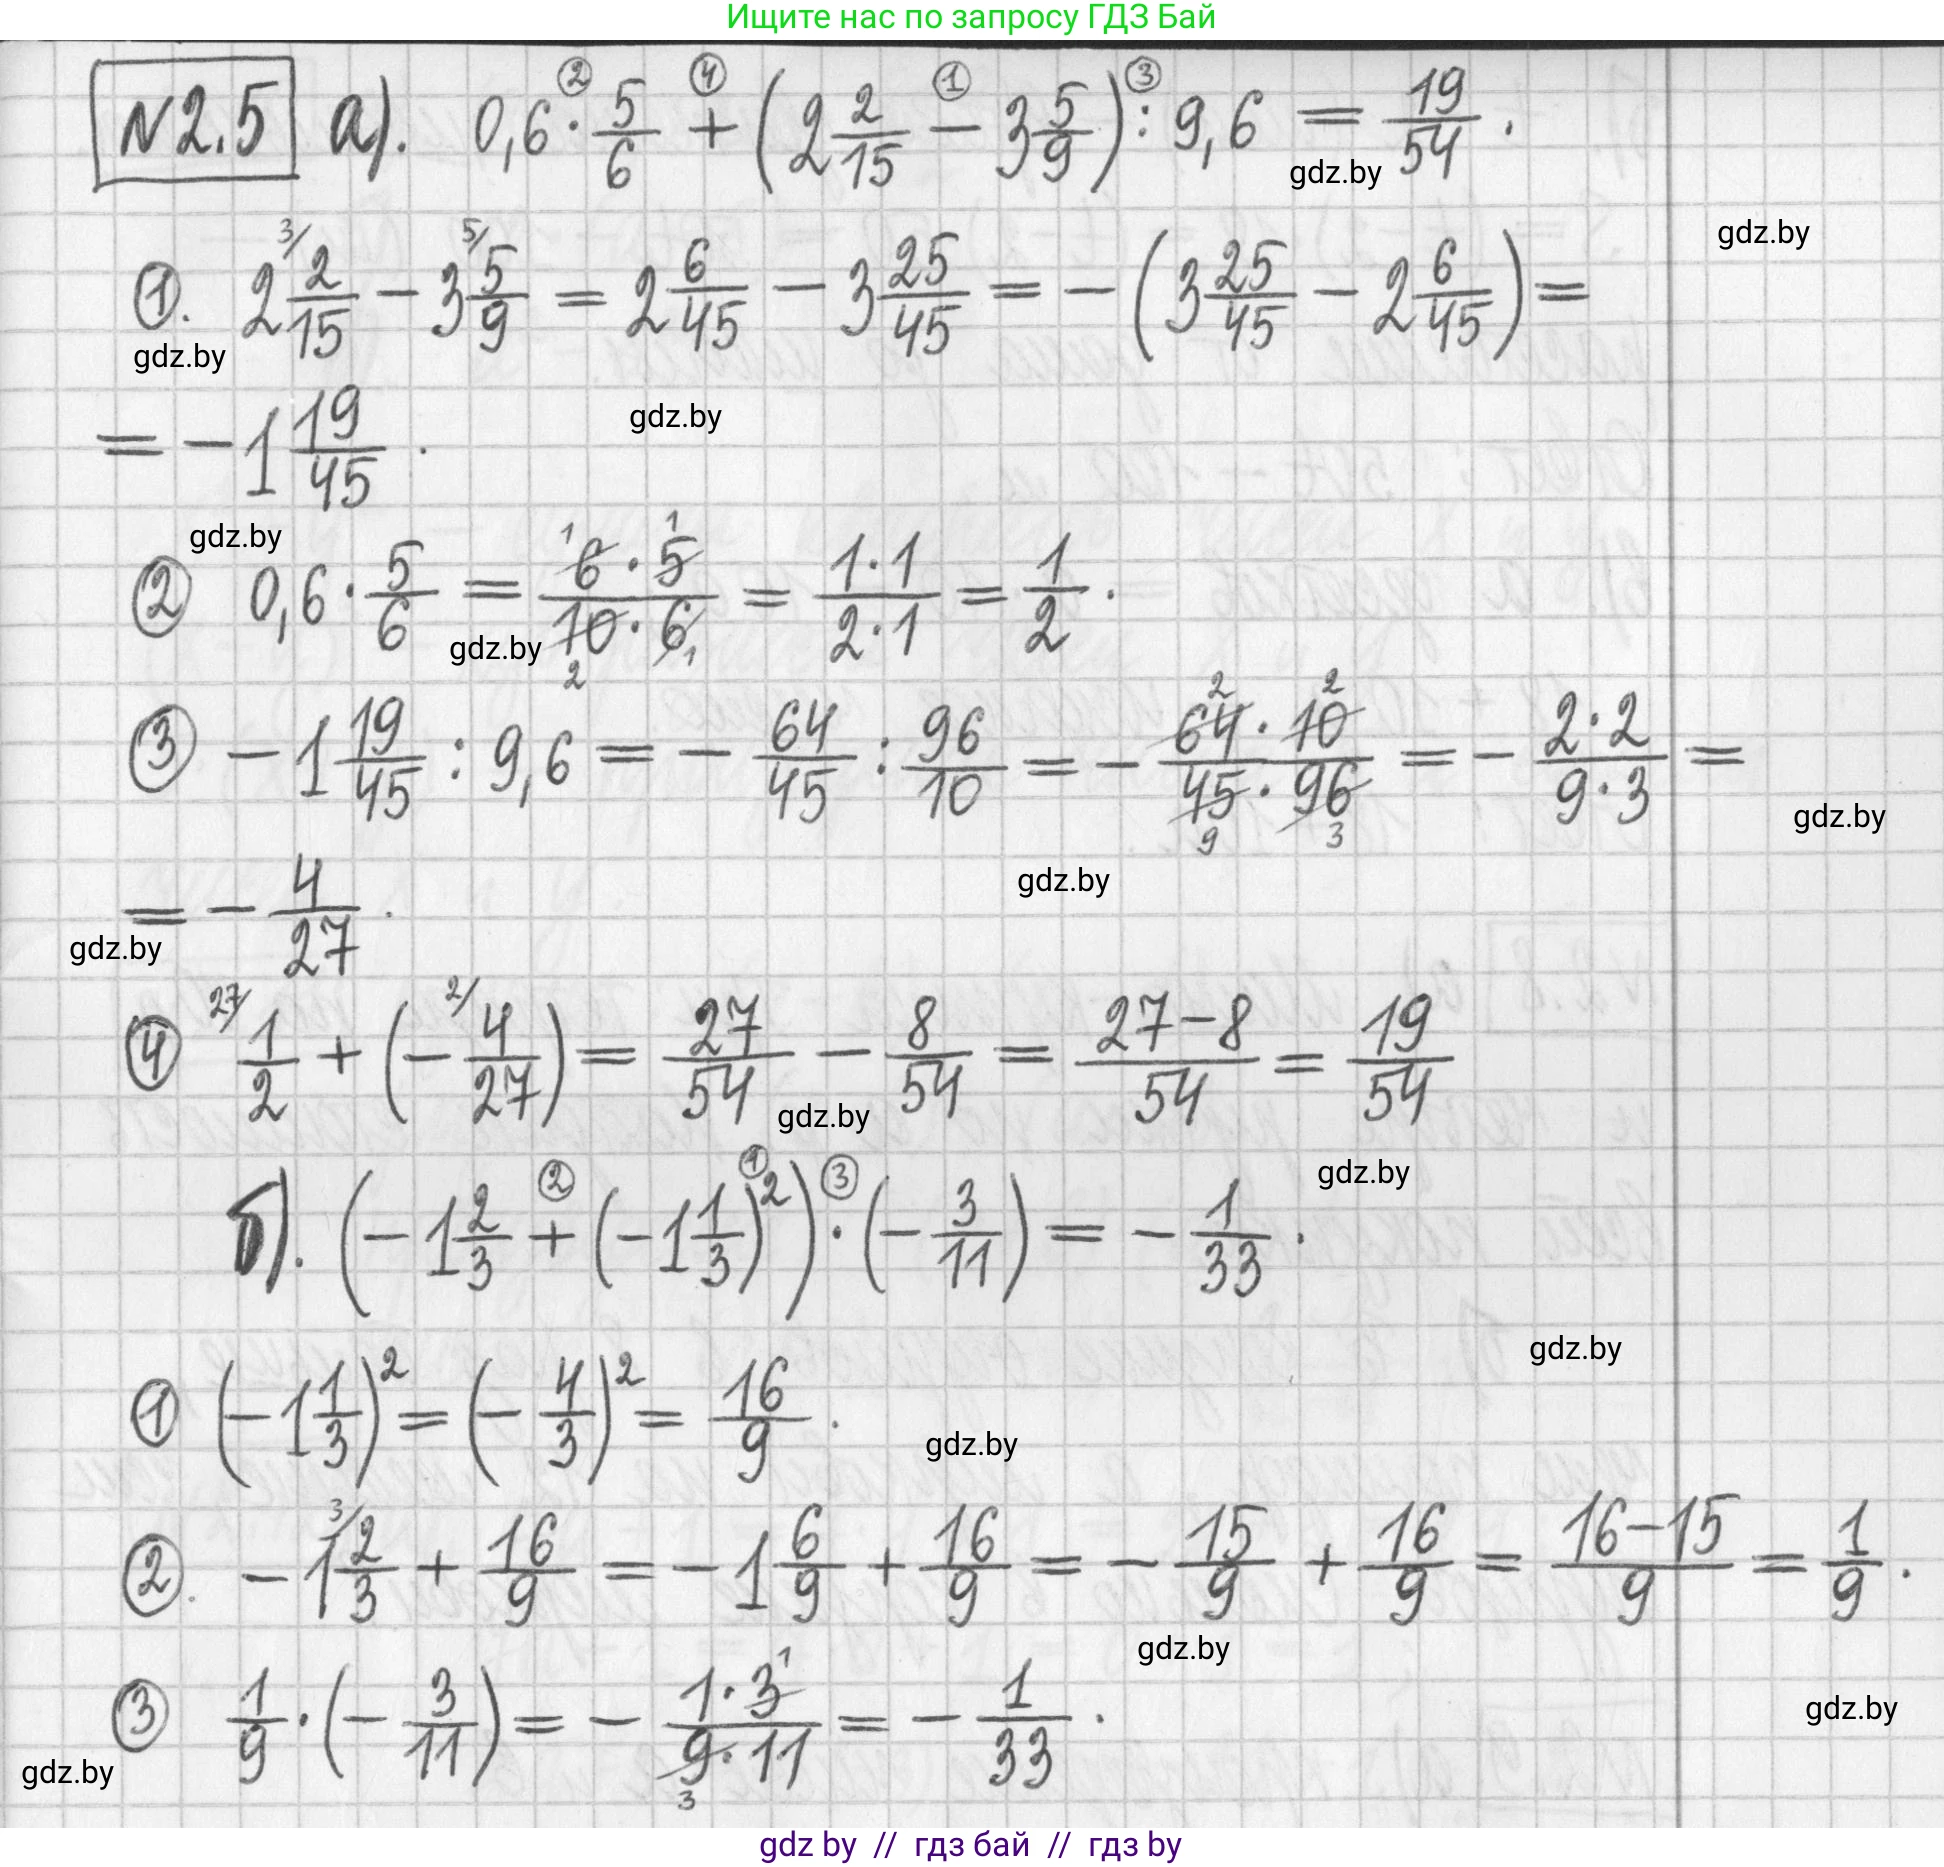 Ищите нас по запросу ГДЗ Бай
№2.5 а). 0,6 · 5/6 + (2 2/15 − 3 5/9) : 9,6 = 19/54.
② ④ ① ③
gdz.by
gdz.by
①. 2 2/15 − 3 5/9 = 2 6/45 − 3 25/45 = −(3 25/45 − 2 6/45) =
3/ 5/
gdz.by
= −1 19/45.
gdz.by
gdz.by
② 0,6 · 5/6 = 6·5/10·6 = 1·1/2·1 = 1/2.
1 1 2 1
gdz.by
③ −1 19/45 : 9,6 = −64/45 : 96/10 = −64·10/45·96 = −2·2/9·3 =
2 2 9 3
gdz.by
gdz.by
= −4/27.
gdz.by
④ 1/2 + (−4/27) = 27/54 − 8/54 = 27−8/54 = 19/54
27/ 2/
gdz.by
gdz.by
б). (−1 2/3 + (−1 1/3)²) · (−3/11) = −1/33.
② ① ③
gdz.by
① (−1 1/3)² = (−4/3)² = 16/9.
gdz.by
②. −1 2/3 + 16/9 = −1 6/9 + 16/9 = −15/9 + 16/9 = 16−15/9 = 1/9.
3/
gdz.by
③ 1/9 · (−3/11) = −1·3/9·11 = −1/33.
1 3
gdz.by
gdz.by
gdz by // гдз бай // гдз by